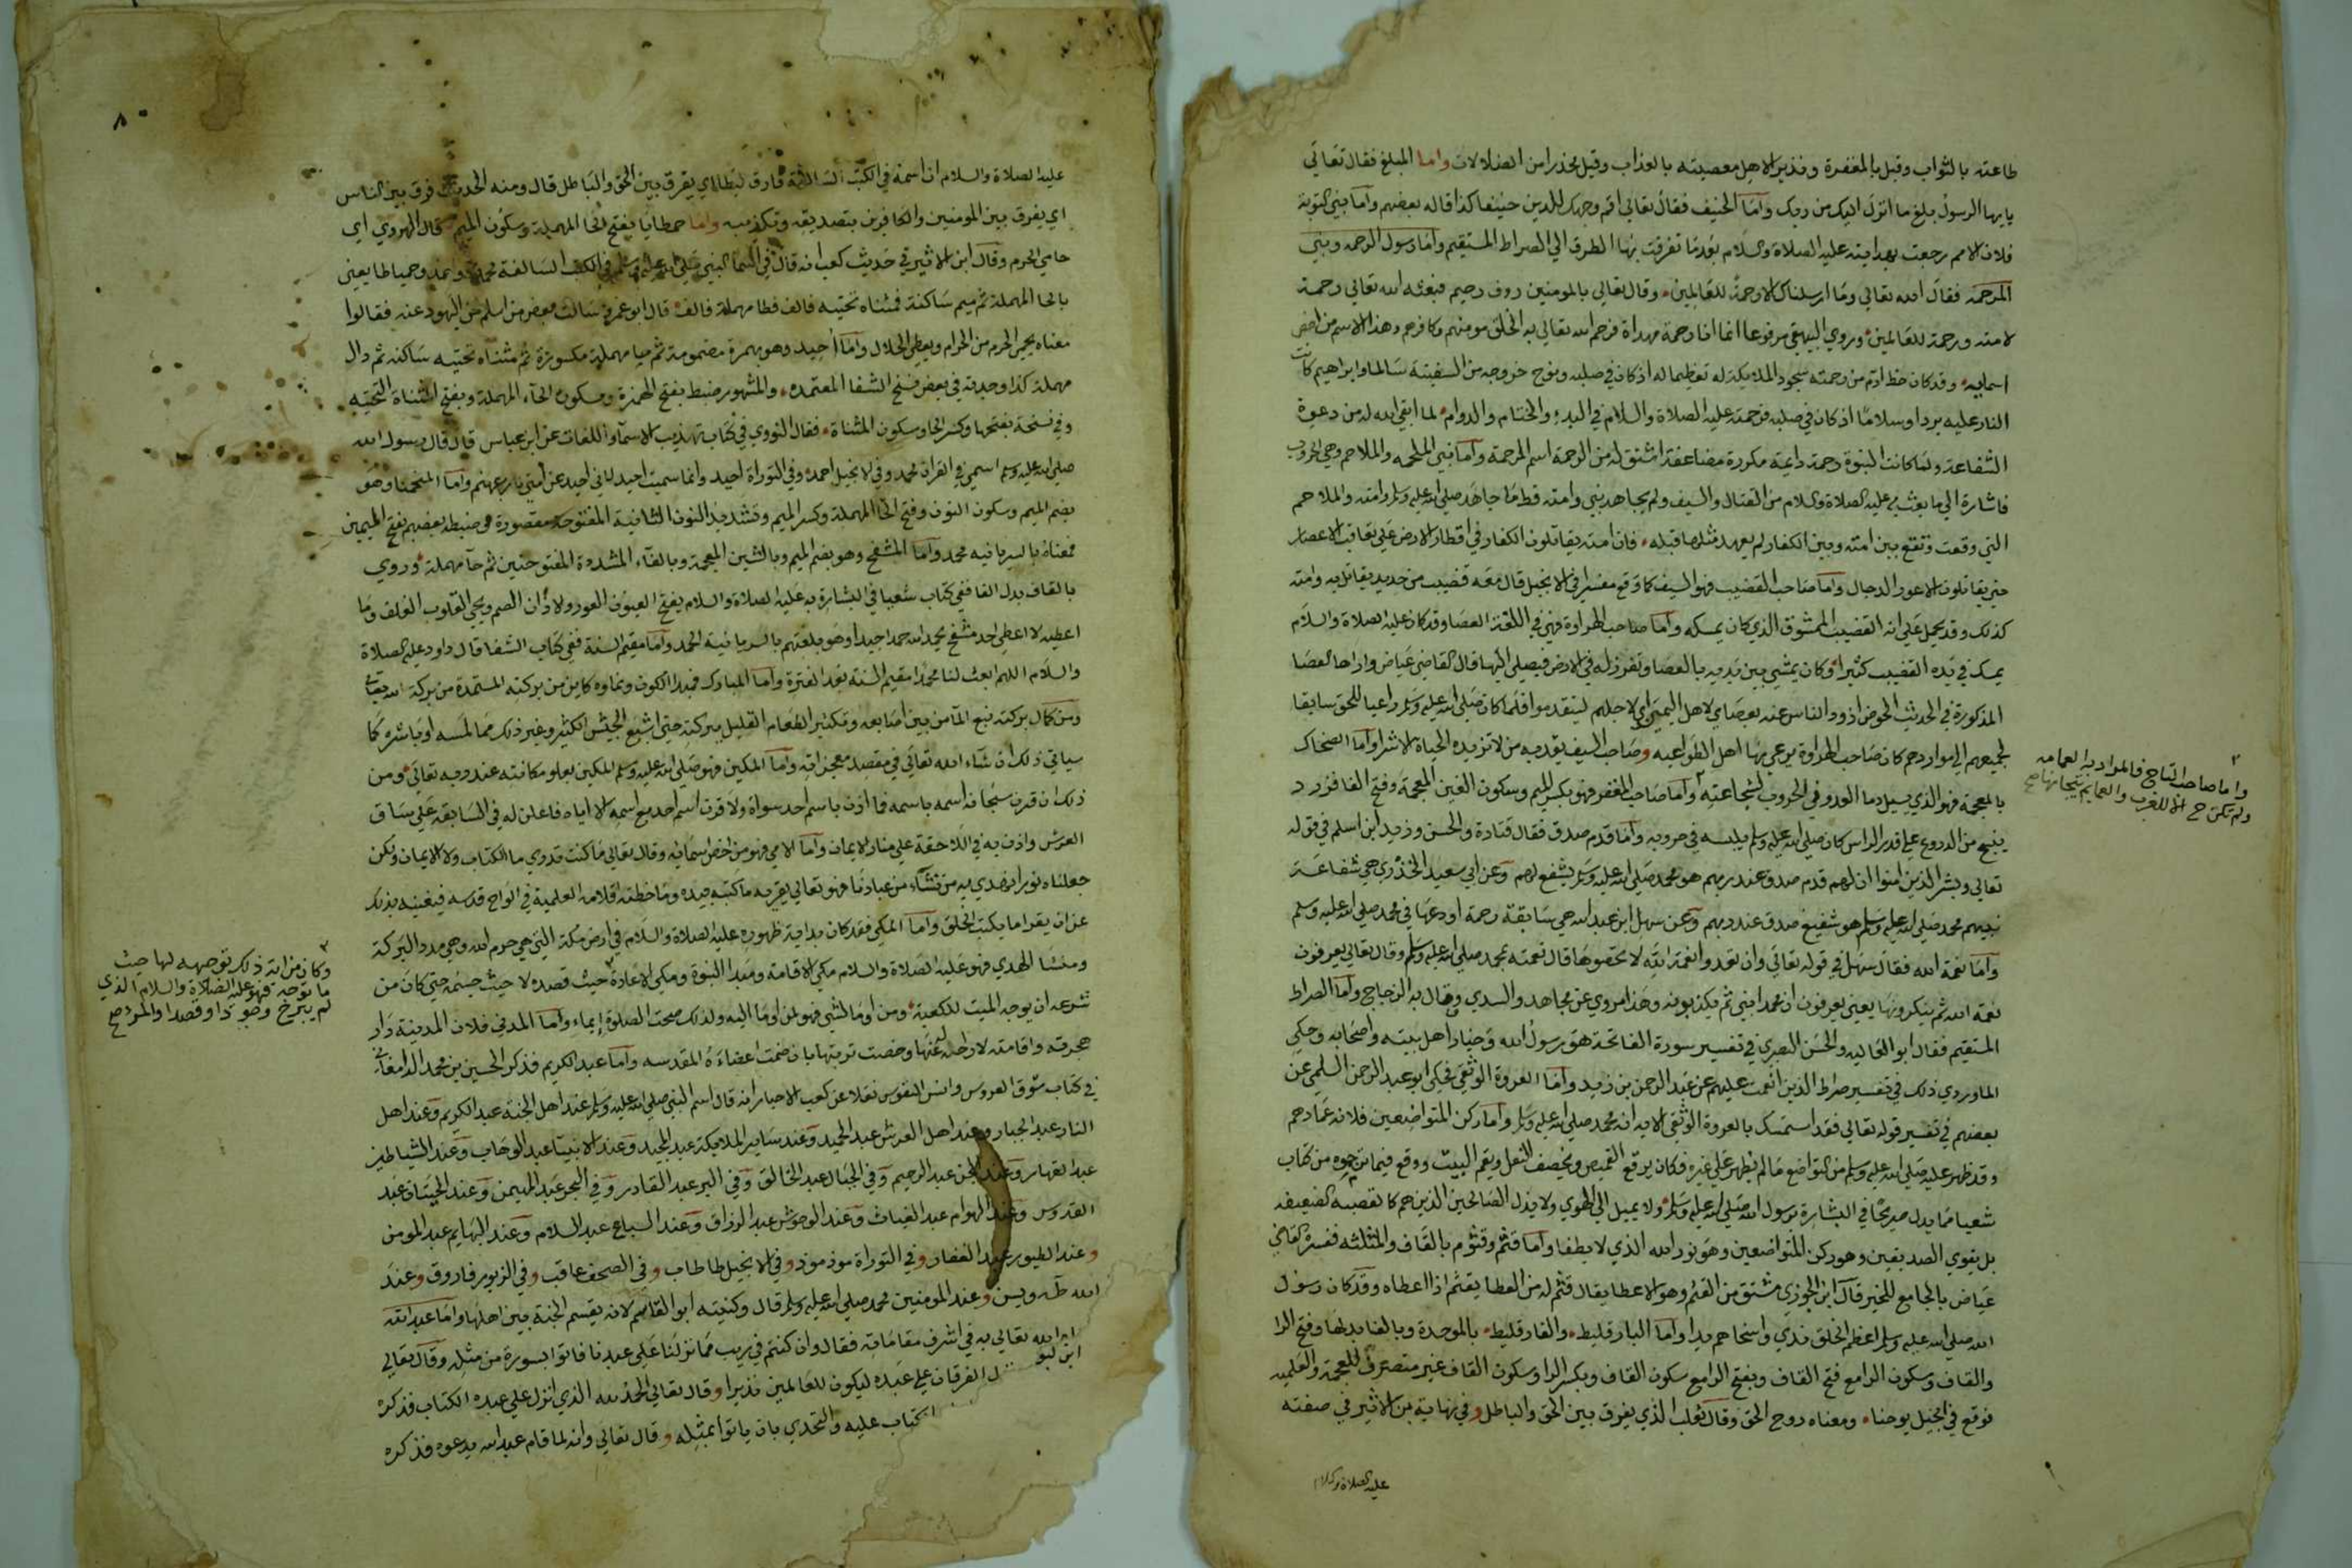 طاعته بالثواب وقيل بالمغفرة ونذير الاهل معصيته بالعذاب وقيل محذرا من الضلالات واما المبلغ فقال تعالى
يايها الرسول بلغ ما انزل اليك من ربك واما الحنيف فقال تعالى اقم وجهك للدين حنيفا كذا قاله بعضهم واما نبي التوبة
فلان الامم رجعت بهدايته عليه الصلاة والسلام بعد ما تفرقت بها الطرق الي الصراط المستقيم واما رسول الرحمه ونبي
المرحمة فقال الله تعالي وما ارسلناك الا رحمة للعالمين وقال تعالي بالمومنين روف رحيم فبعثه الله تعالي رحمة
لامته ورحمة للعالمين وروي البيهقي مرفوعا انما انا رحمة مهداة فرحم الله تعالي به الخلق مومنهم وكافرهم وهذا الاسم من اخص
اسمايه وقد كان حظ ادم من رحمته سجود الملايكة له تعظيما له اذ كان في صلبه ونوح خروجه من السفينة سالما وابراهيم كانت
النار عليه بردا وسلاما اذ كان في صلبه فرحمته عليه الصلاة والسلام في البدء والختام والدوام لما ابقي الله له من دعوة
الشفاعة ولما كانت النبوة رحمة دايمة مكررة مضاعفة اشتق له من الرحمة اسم الرحمة واما نبي الملحمه والملاحم وهي الحروب
فاشارة الي ما بعث به عليه الصلاة والسلام من القتال والسيف ولم يجاهد نبي وامته قط ما جاهد صلي الله عليه وسلم وامته والملاحم
التي وقعت وتقع بين امته وبين الكفار لم يعهد مثلها قبله فان امته يقاتلون الكفار في اقطار الارض علي تعاقب الاعصار
حتي يقاتلون الاعور الدجال واما صاحب القضيب فهو السيف كما وقع مفسرا في الانجيل قال معه قضيب من حديد يقاتل به وامته
كذلك وقد يحمل علي انه القضيب الممشوق الذي كان يمسكه واما صاحب الهراوة فهي في اللغة العصا وقد كان عليه الصلاة والسلام
يمسك في يده القضيب كثيرا وكان يمشي بين يديه بالعصا وتغرز له في الارض فيصلي اليها قال القاضي عياض واراها العصا
المذكورة في الحديث الحوض اذود الناس عنه بعصاي لاهل اليمن اي لاجلهم ليتقدموا فلما كان صلي الله عليه وسلم راعيا للحق سابقا
لجميعهم الي مواردهم كان صاحب الهراوة يرعي بها اهل الطواعيه وصاحب السيف يقد به من لا تزيده الحياة الا شرا واما الضحاك
بالمعجمة فهو الذي يسيل دما العدو في الحروب لشجاعته واما صاحب المغفر فهو بكسر الميم وسكون الغين المعجمة وفتح الفا فزرد
ينسج من الدروع علي قدر الراس كان صلي الله عليه وسلم يلبسه في حروبه واما قدم صدق فقال قتادة والحسن وزيد ابن اسلم في قوله
تعالي وبشر الذين امنوا ان لهم قدم صدق عند ربهم هو محمد صلي الله عليه وسلم يشفع لهم وعن ابي سعيد الخذري هي شفاعة
نبيهم محمد صلي الله عليه وسلم هو شفيع صدق عند ربهم وعن سهل ابن عبد الله هي سابقة رحمة اودعها في محمد صلي الله عليه وسلم
واما نعمة الله فقال سهل في قوله تعالي وان تعدوا نعمة الله لا تحصوها قال نعمته بمحمد صلي الله عليه وسلم وقال تعالي يعرفون
نعمة الله ثم ينكرونها يعني يعرفون ان محمدا نبي ثم يكذبونه وهذا مروي عن مجاهد والسدي وقال به الزجاج واما الصراط
المستقيم فقال ابو العاليه والحسن البصري في تفسير سورة الفاتحة هو رسول الله وخيار اهل بيته واصحابه وحكي
الماوردي ذلك في تفسير صراط الذين انعمت عليهم عن عبد الرحمن بن زيد واما العروة الوثقي فحكي ابو عبد الرحمن السلمي عن
بعضهم في تفسير قوله تعالي فقد استمسك بالعروة الوثقي الايه انه محمد صلي الله عليه وسلم واما ركن المتواضعين فلانه عمادهم
وقد ظهر عليه صلي الله عليه وسلم من التواضع ما لم يظهر علي غيره فكان يرقع القميص ويخصف النعل ويقم البيت ووقع فيما ترجموه من كتاب
شعيا مما يدل صريحا في البشارة برسول الله صلي الله عليه وسلم ولا يميل الي الهوي ولا يذل الصالحين الذين هم كالقصبة الضعيفه
بل يقوي الصديقين وهو ركن المتواضعين وهو نور الله الذي لا يطفا واما قثم وقثوم بالقاف والمثلثه ففسره القاضي
عياض بالجامع للخير قال ابن الجوزي مشتق من القثم وهو الاعطا يقال قثم له من العطا يقثم اذا اعطاه وقد كان رسول
الله صلي الله عليه وسلم اعظم الخلق ندي واسخاهم يدا واما البارقليط والفارقليط بالموحدة وبالفا بدلها وفتح الرا
والقاف وسكون الرا مع فتح القاف وبفتح الرا مع سكون القاف وبكسر الرا وسكون القاف غير منصرف للعجمة والعلميه
فوقع في انجيل يوحنا ومعناه روح الحق وقال ثعلب الذي يفرق بين الحق والباطل وفي نهاية ابن الاثير في صفته
عليه الصلاة والسلام
واما صاحب التاج فالمراد به العمامه
ولم تكن ح الا للعرب والعمايم تيجانها صح
٨٠
عليه الصلاة والسلام ان اسمه في الكتب السالفة فارق ليطا اي يفرق بين الحق والباطل قال ومنه الحديث فرق بين الناس
اي يفرق بين المومنين والكافرين بتصديقه وتكذيبه واما حمطايا بفتح الحا المهملة وسكون الميم قال الهروي اي
حامي الحرم وقال ابن الاثير في حديث كعب انه قال في اسما النبي صلي الله عليه وسلم في الكتب السالفة محمد واحمد وحمياطا يعني
بالحا المهملة ثم ميم ساكنة فمثناه تحتيه فالف فطا مهملة فالف قال ابو عمرو سالت بعض من اسلم من اليهود عنه فقالوا
معناه يحمي الحرم من الحرام ويعطي الحلال واما أحيد وهو بهمزة مضمومة ثم حا مهملة مكسورة ثم مثناه تحتيه ساكنه ثم دال
مهملة كذا وجدته في بعض نسخ الشفا المعتمده والمشهور ضبط بفتح الهمزة وسكون الحاء المهملة وبفتح المثناة التحتيه
وفي نسخة بفتحها وكسر الحا وسكون المثناة فقال النووي في كتاب تهذيب الاسماء واللغات عن ابن عباس قال قال رسول الله
صلي الله عليه وسلم اسمي في القران محمد وفي الانجيل احمد وفي التوراة احيد وانما سميت احيد لاني احيد عن امتي نار جهنم واما المنحمنا وهو
بضم الميم وسكون النون وفتح الحا المهملة وكسر الميم وتشديد النون الثانية المفتوحة مقصورة وضبطه بعضهم بفتح الميمين
فمعناه بالسريانيه محمد واما المشفح وهو بضم الميم وبالشين المعجمة وبالفاء المشددة المفتوحتين ثم حا مهملة وروي
بالقاف بدل الفا ففي كتاب شعيا في البشارة به عليه الصلاة والسلام يفتح العيون العور والاذان الصم ويحي القلوب الغلف وما
اعطيه لا اعطي احد مشفح يحمد الله حمدا جديدا وهو بلغتهم بالسريانية الحمد واما مقيم السنة ففي كتاب الشفا قال داود عليه الصلاة
والسلام اللهم ابعث لنا محمدا مقيم السنة بعد الفترة واما المبارك فمبدا الكون ونماوه كاين من بركته المستمدة من بركة الله تعالي
ومن كمال بركته نبع الما من بين اصابعه وتكثير الطعام القليل ببركته حتي اشبع الجيش الكثير وغير ذلك مما لمسه او باشره كما
سياتي ذلك ان شاء الله تعالي في مقصد معجزاته واما المكين فهو صلي الله عليه وسلم المكين بعلو مكانته عند ربه تعالي ومن
ذلك ان قرن سبحانه اسمه باسمه فما اذن باسم احد سواه ولا قرن اسم احد مع اسمه الا اياه فاعلن له في السابقه علي ساق
العرش واذن به في اللاحقة علي منار الايمان واما الامي فهو من اخص اسمائه وقال تعالي ما كنت تدري ما الكتاب ولا الايمان ولكن
جعلناه نورا نهدي به من نشآء من عبادنا فهو تعالي يقريه ما كتبه بيده وما خطته اقلامه العلمية في الواح قدسه فيغنيه بذلك
عن ان يقرا ما يكتب الخلق واما المكي فقد كان بداية ظهوره عليه الصلاة والسلام في ارض مكة التي هي حرم الله وهي مدد البركة
ومنشا الهدي فهو عليه الصلاة والسلام مكي الاقامة ومبدا النبوة ومكي الاعادة حيث قصده لا حيث جسمه حتي كان من
شرعه ان يوجه الميت للكعبة ومن اوما لشي فهو لمن اوما اليه ولذلك صحت الصلوة إيماء واما المدني فلان المدينة دار
هجرته واقامته لا رحلة عنها وخصت تربتها بان ضمت اعضاءه المقدسه واما عبد الكريم فذكر الحسين بن محمد الدامغاني
في كتاب شوق العروس وانس النفوس نقلا عن كعب الاحبار انه قال اسم النبي صلي الله عليه وسلم عند اهل الجنة عبد الكريم وعند اهل
النار عبد الجبار وعند اهل العرش عبد الحميد وعند ساير الملايكة عبد المجيد وعند الانبيا عبد الوهاب وعند الشياطين
عبد القهار وعند الجن عبد الرحيم وفي الجبال عبد الخالق وفي البر عبد القادر وفي البحر عبد المهيمن وعند الحيتان عبد
القدوس وعند الهوام عبد الغياث وعند الوحوش عبد الرزاق وعند السباع عبد السلام وعند البهايم عبد المومن
وعند الطيور عبد الغفار وفي التوراة موذموذ وفي الانجيل طاطاب وفي الصحف عاقب وفي الزبور فاروق وعند
الله طه ويسن وعند المومنين محمد صلي الله عليه وسلم قال وكنيته ابو القاسم لانه يقسم الجنة بين اهلها واما عبد الله
الله تعالي به في اشرف مقاماته فقال وان كنتم في ريب مما نزلنا علي عبدنا فاتوا بسورة من مثله وقال تعالي
الفرقان علي عبده ليكون للعالمين نذيرا وقال تعالي الحمد لله الذي انزل علي عبده الكتاب فذكره
الكتاب عليه والتحدي بان ياتوا بمثله وقال تعالي وانه لما قام عبد الله يدعوه فذكره
وكان من اية ذلك توجهه لها حيث
ما توجه فهو عليه الصلاة والسلام الذي
لم يبرح وجودا وقصدا والمرء صح